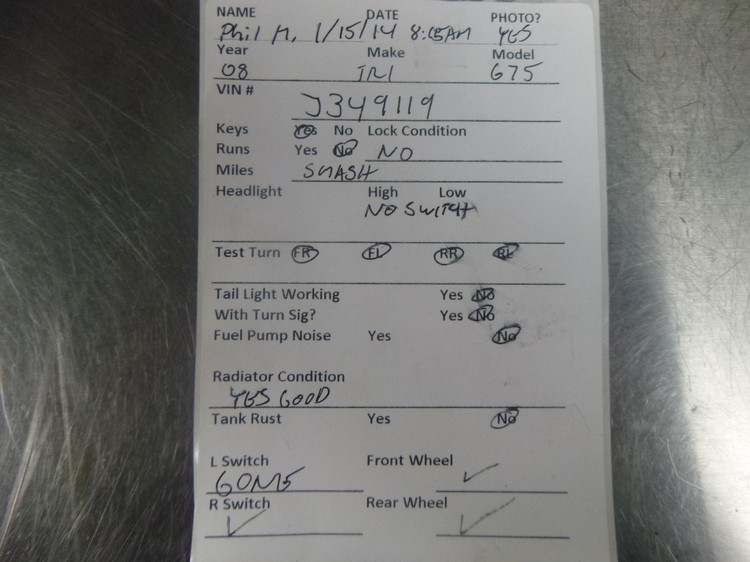 NAME DATE PHOTO?
Phil M. 1/15/14 8:05AM YES
Year Make Model
08 TRI 675
VIN #
J349119
Keys Yes No Lock Condition
Runs Yes No NO
Miles SMASH
Headlight High Low
NO SWITCH
Test Turn FR FL RR RL
Tail Light Working Yes No
With Turn Sig? Yes No
Fuel Pump Noise Yes No
Radiator Condition
YES GOOD
Tank Rust Yes No
L Switch Front Wheel
GONE ✓
R Switch Rear Wheel
✓ ✓